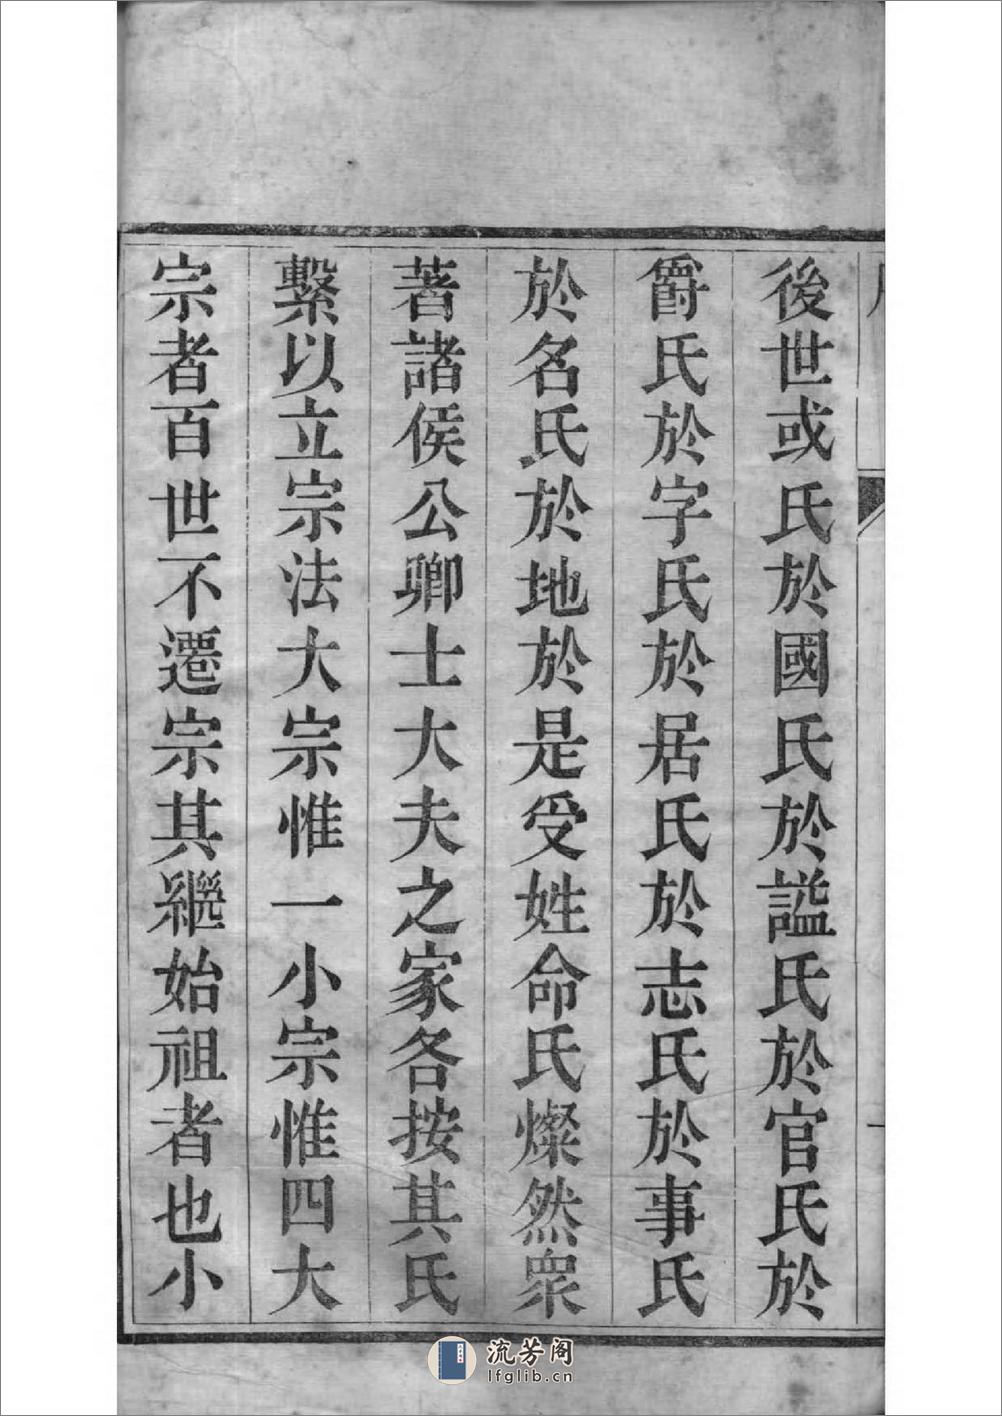 後世或氏於國氏於謚氏於官氏於
爵氏於字氏於居氏於志氏於事氏
於名氏於地於是受姓命氏燦然眾
著諸侯公卿士大夫之家各按其氏
繫以立宗法大宗惟一小宗惟四大
宗者百世不遷宗其繼始祖者也小
流芳阁
lfglib.cn